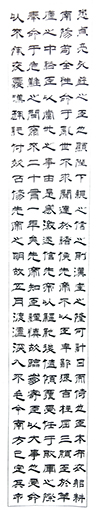 悉貞亮死節之臣願陛下親之信之則漢室之隆可計日而待也臣本布衣躬耕
南陽苟全性命於亂世不求聞達於諸侯先帝不以臣卑鄙猥自枉屈三顧臣於草
廬之中諮臣以當世之事由是感激遂許先帝以驅馳後值傾覆受任於敗軍之際
奉命於危難之間爾來二十有一年矣先帝知臣謹慎故臨崩寄臣以大事也受命
以來夙夜憂歎恐託付不效以傷先帝之明故五月渡瀘深入不毛今南方已定兵甲